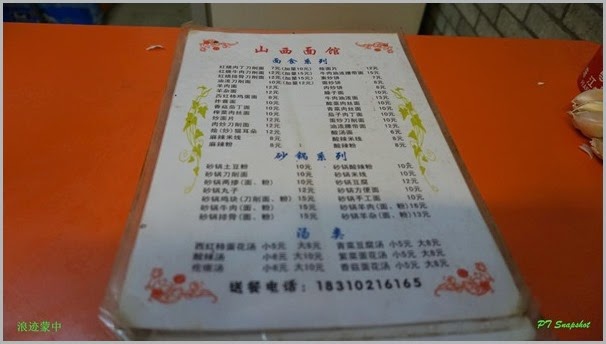 山西面馆
面食系列
红烧肉丁刀削面 7元(加量10元) 烩面片 12元
红烧牛肉刀削面 12元(加量15元) 牛肉油泼腰带面 15元
红烧排骨刀削面 12元(加量15元) 素炒饼 8元
油泼刀削面 10元(加量12元) 肉炒饼 10元
羊肉面 12元
羊杂面 12元 牛肉油泼面
西红柿鸡蛋面 8元 酸菜肉丝面 10元
炸酱面 8元 香菜肉丝面 10元
香菇肉丁面 10元 茄子肉丁面 10元
榨菜肉丝面 10元 蛋炒刀削面 10元
炒面片 12元 油泼腰带面 10元
肉炒刀削面 12元 酸汤面 8元
烩(炒)猫耳朵 12元 酸辣米线 8元
麻辣米线 8元 酸辣粉 8元
麻辣粉 8元
砂锅系列
砂锅土豆粉 10元 砂锅酸辣粉 10元
砂锅刀削面 10元 砂锅米线 10元
砂锅丸子 12元 砂锅方便面 10元
砂锅鸡块(刀削面、粉) 15元 砂锅手工面 10元
砂锅牛肉(面、粉) 15元 砂锅羊肉(面、粉) 16元
砂锅排骨(面、粉) 15元 砂锅羊杂(面、粉) 13元
汤类
西红柿蛋花汤 小5元 大8元 青菜豆腐汤 小5元 大8元
酸辣汤 小6元 大10元 紫菜蛋花汤 小5元 大8元
疙瘩汤 小6元 大10元 香菇蛋花汤 小5元 大8元
送餐电话:18310216165
浪迹蒙中
PT Snapshot